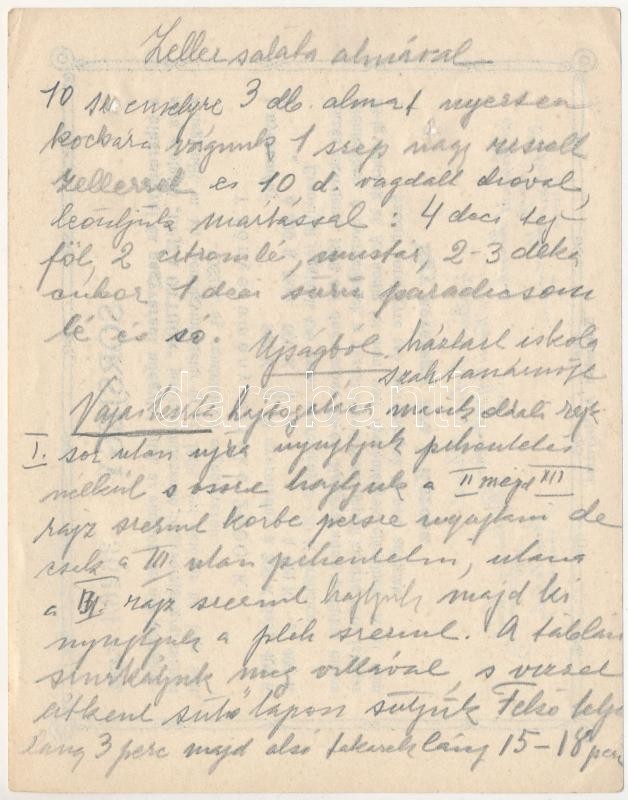 Zeller saláta almával
10 személyre 3 db. almát nyersen
kockára vágunk 1 szép nagy reszelt
zellerrel és 10 d. vagdalt dióval,
leöntjük mártással: 4 deci tej-
föl, 2 citromlé, mustár, 2-3 deka
cukor 1 deci sűrű paradicsom
lé és só.
Ujságból háztart iskola
szaktanárnője
Vajas tészta hajtogatása másik
I. sor után ujra nyujtjuk pihentetés
nélkül s össze hajtjuk a II majd III
rajz szerint körbe persze nyujtani de
csak a III. után pihentetni, utána
a IV. rajz szerint hajtjuk majd ki
nyujtjuk a pléh szerint. A táblán
szurkáljuk meg villával, s vizzel
sütő lapon sütjük Felső telje
láng 3 perc majd alsó takarékláng 15-18 perc
darabanth